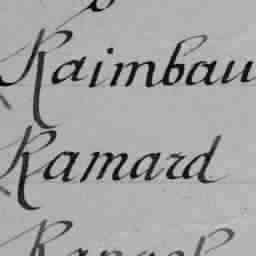 Raimbau
Ramard